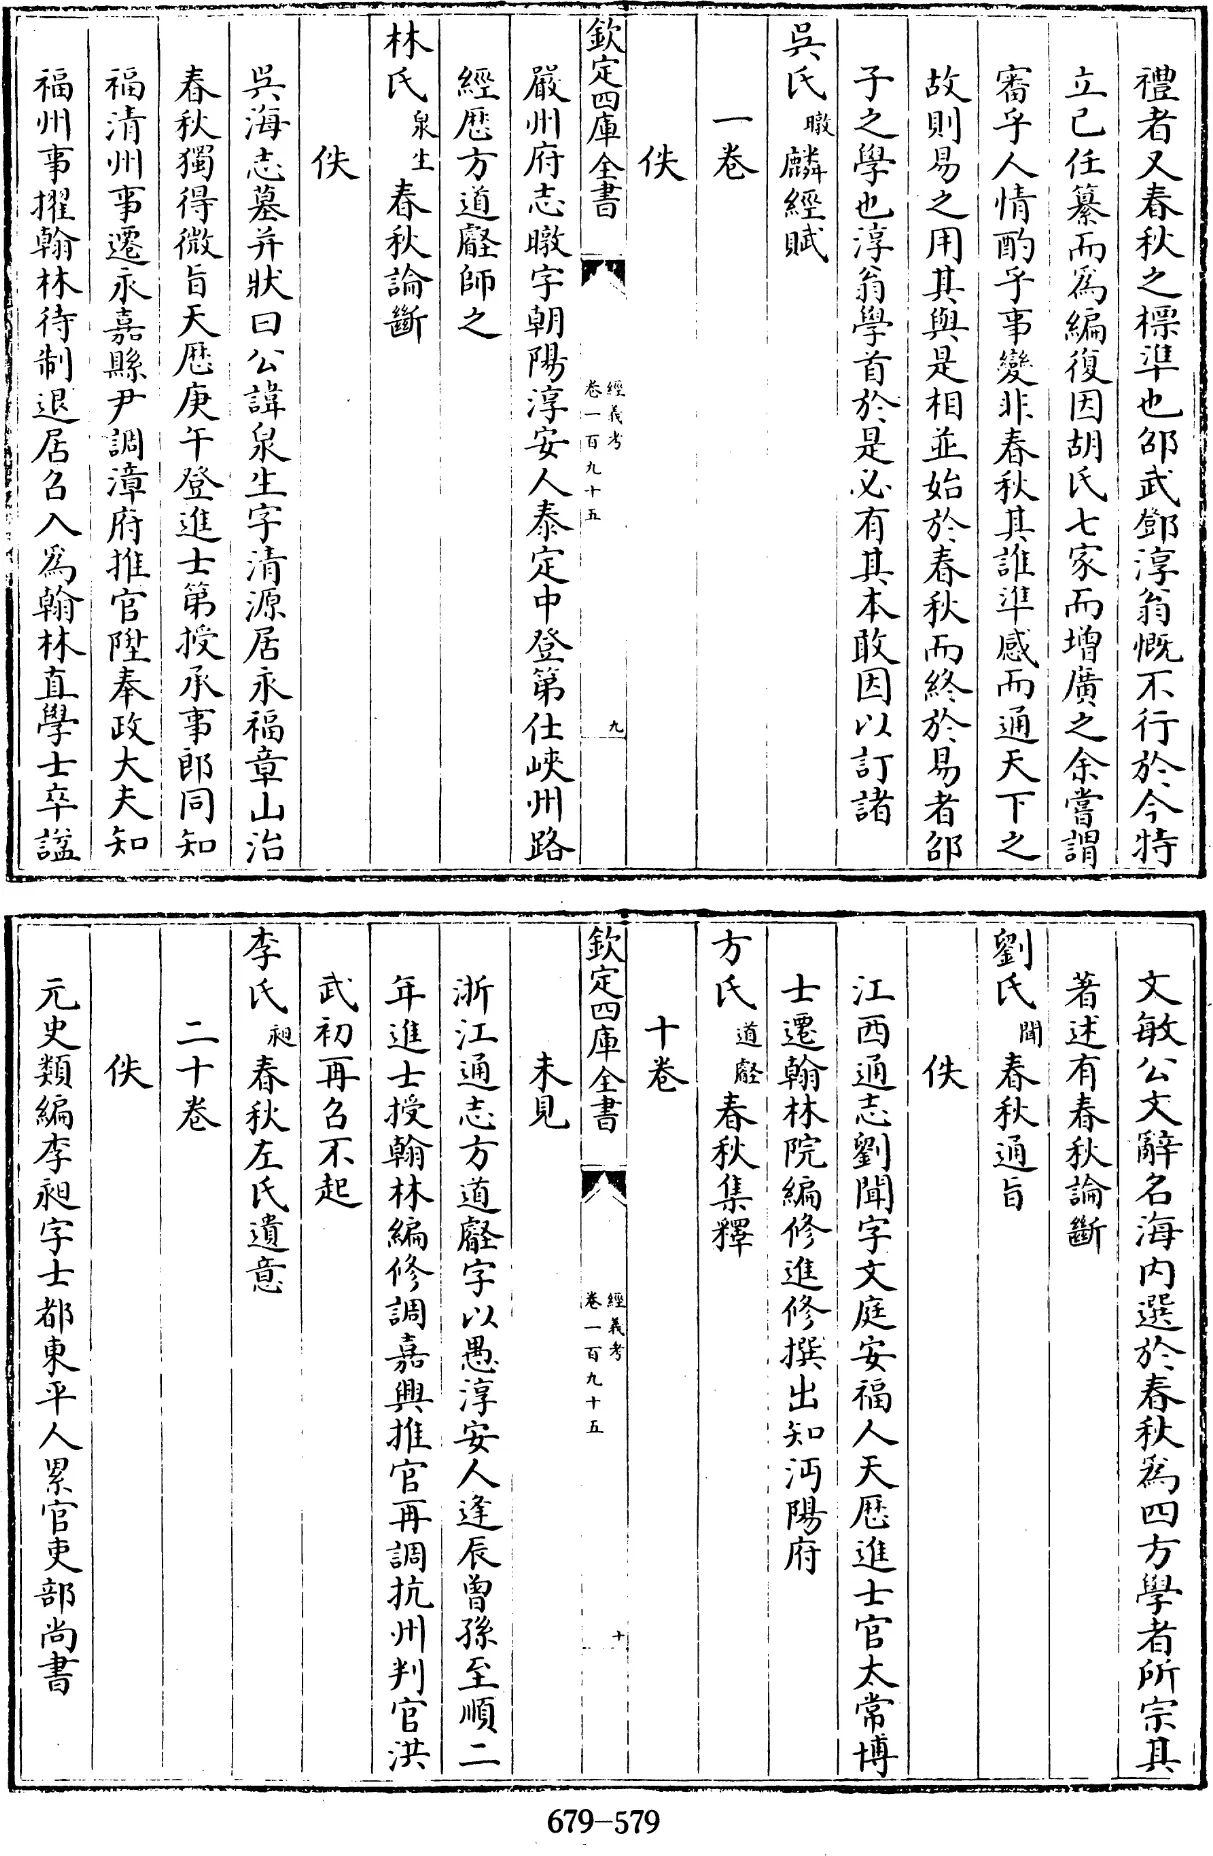 禮者又春秋之標準也邵武鄧淳翁慨不行於今特
立己任纂而爲編復因胡氏七家而增廣之余嘗謂
審乎人情酌乎事變非春秋其誰準感而通天下之
故則易之用其與是相並始於春秋而終於易者邵
子之學也淳翁學首於是必有其本敢因以訂諸
吳氏暾麟經賦
一卷
佚
欽定四庫全書
經義考
卷一百九十五
九
嚴州府志暾字朝陽淳安人泰定中登第仕峽州路
經歷方道壡師之
林氏泉生春秋論斷
佚
吳海志墓并狀曰公諱泉生字清源居永福章山治
春秋獨得微旨天歷庚午登進士第授承事郎同知
福清州事遷永嘉縣尹調漳府推官陞奉政大夫知
福州事擢翰林待制退居召入爲翰林直學士卒諡
文敏公文辭名海内選於春秋爲四方學者所宗其
著述有春秋論斷
劉氏聞春秋通旨
佚
江西通志劉聞字文庭安福人天歷進士官太常博
士遷翰林院編修進修撰出知沔陽府
方氏道壡春秋集釋
十卷
欽定四庫全書
經義考
卷一百九十五
十
未見
浙江通志方道壡字以愚淳安人逢辰曾孫至順二
年進士授翰林編修調嘉興推官再調杭州判官洪
武初再召不起
李氏昶春秋左氏遺意
二十卷
佚
元史類編李昶字士都東平人累官吏部尚書
679-579